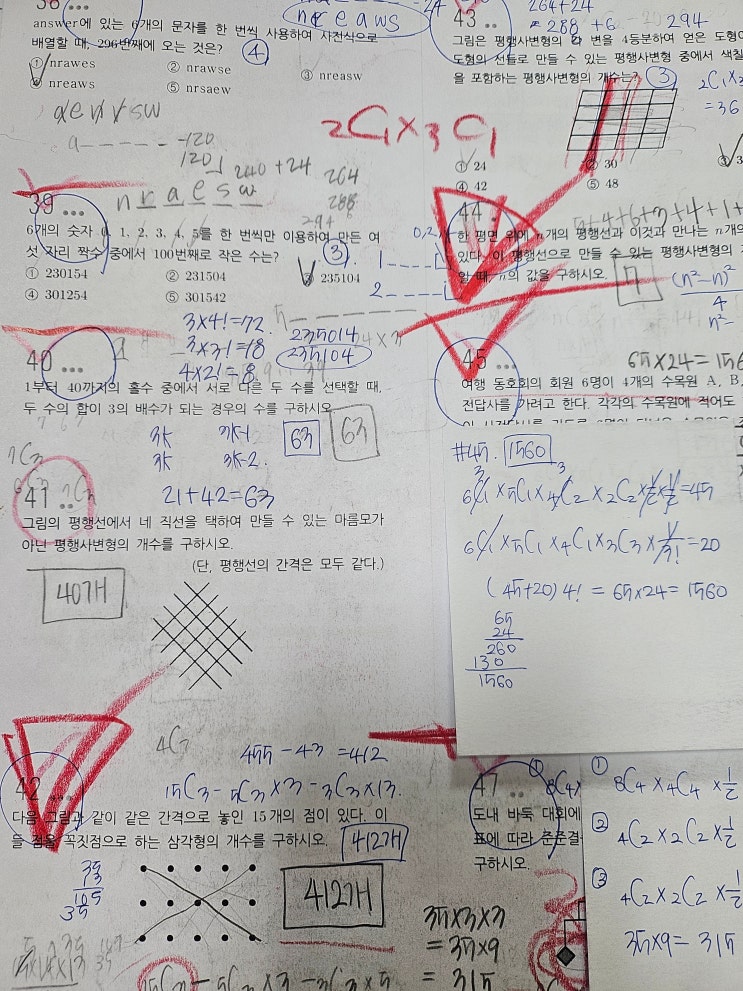 38
answer에 있는 6개의 문자를 한 번씩 사용하여 사전식으로
배열할 때, 296번째에 오는 것은? ④
① nrawes ② nrawse ③ nreasw
④ nreaws ⑤ nrsaew
nreaws
a-----120
120
240+24
264
288
294
n r a e s w
39
6개의 숫자 0, 1, 2, 3, 4, 5를 한 번씩만 이용하여 만든 여
섯 자리 짝수 중에서 100번째로 작은 수는? ③
① 230154 ② 231504 ③ 235104
④ 301254 ⑤ 301542
3×4!=72
3×3!=18
4×2!=8
235014
235104
40
1부터 40까지의 홀수 중에서 서로 다른 두 수를 선택할 때,
두 수의 합이 3의 배수가 되는 경우의 수를 구하시오.
3K 3K-1
3K 3K-2
63
63
21+42=63
41
그림의 평행선에서 네 직선을 택하여 만들 수 있는 마름모가
아닌 평행사변형의 개수를 구하시오.
(단, 평행선의 간격은 모두 같다.)
40개
455-43=412
15C3-5C3×3-3C3×13
42
다음 그림과 같이 같은 간격으로 놓인 15개의 점이 있다. 이
들 점을 꼭짓점으로 하는 삼각형의 개수를 구하시오.
412개
412개
35
13
105
35
264+24
=288+6
294
43
그림은 평행사변형의 각 변을 4등분하여 얻은 도형이
도형의 선들로 만들 수 있는 평행사변형 중에서 색칠
을 포함하는 평행사변형의 개수는? ③
2C1×3C1
2C1×2
=36
① 24 ② 30
④ 42 ⑤ 48
44
한 평면 위에 n개의 평행선과 이것과 만나는 n개의
있다. 이 평행선으로 만들 수 있는 평행사변형의
할 때, n의 값을 구하시오.
0,2,4
1
2
7
(n²-n)²
4
n²-
45
65×24=156
여행 동호회의 회원 6명이 4개의 수목원 A, B,
전답사를 가려고 한다. 각각의 수목원에 적어도
#45. 1560
6C1×5C1×4C2×2C2×1/2×1/2=45
6C1×5C1×4C1×3C3×1/3!=20
(45+20)4!=65×24=1560
65
24
260
130
1560
47
도내 바둑 대회에
표에 따라 준준결
구하시오.
35×3×3
=35×9
=315
① 8C4×4C4×1/2
② 4C2×2C2×1/2
③ 4C2×2C2×1/2
35×9=315
15C3-5C3×3-3C3×5